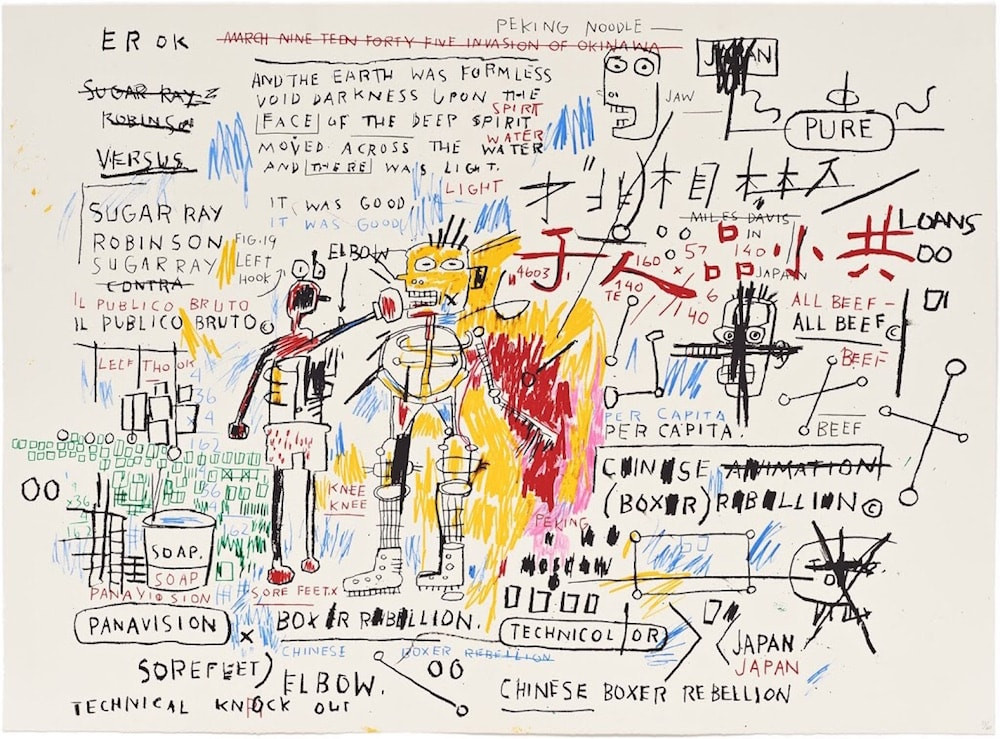 PEKING NOODLE —
EROK
MARCH NINETEEN FORTY FIVE INVASION OF OKINAWA
JAPAN
SUGAR RAY
ROBINSO
VERSUS
AND THE EARTH WAS FORMLESS
VOID DARKNESS UPON THE
SPIRIT
FACE OF THE DEEP SPIRIT
WATER
MOVED ACROSS THE WATER
AND THERE WAS LIGHT.
LIGHT
JAW
PURE
IT WAS GOOD
IT WAS GOOD
SUGAR RAY
ROBINSON
SUGAR RAY
CONTRA
FIG.19
LEFT
HOOK
ELBOW
MILES DAVIS
IN
JAPAN
LOANS
OO
于人品小共
4603
160 × 57 140
140
TE
6
40
IL PUBLICO BRUTO
IL PUBLICO BRUTO©
ALL BEEF—
ALL BEEF
BEEF
BEEF
LELF THOOK
4
36
× 4
162
PER CAPITA
PER CAPITA.
CHINESE ANIMATION
(BOXER) REBELLION©
KNEE
KNEE
OO
×36
162
SOAP.
SOAP
PEKING
MOSCOW
PANAVISION
SORE FEET.X
PANAVISION
X
BOXER REBELLION.
TECHNICOLOR
CHINESE BOXER REBELLION
JAPAN
JAPAN
SOREFEET)
ELBOW.
OO
CHINESE BOXER REBELLION
TECHNICAL KNOCK OUT